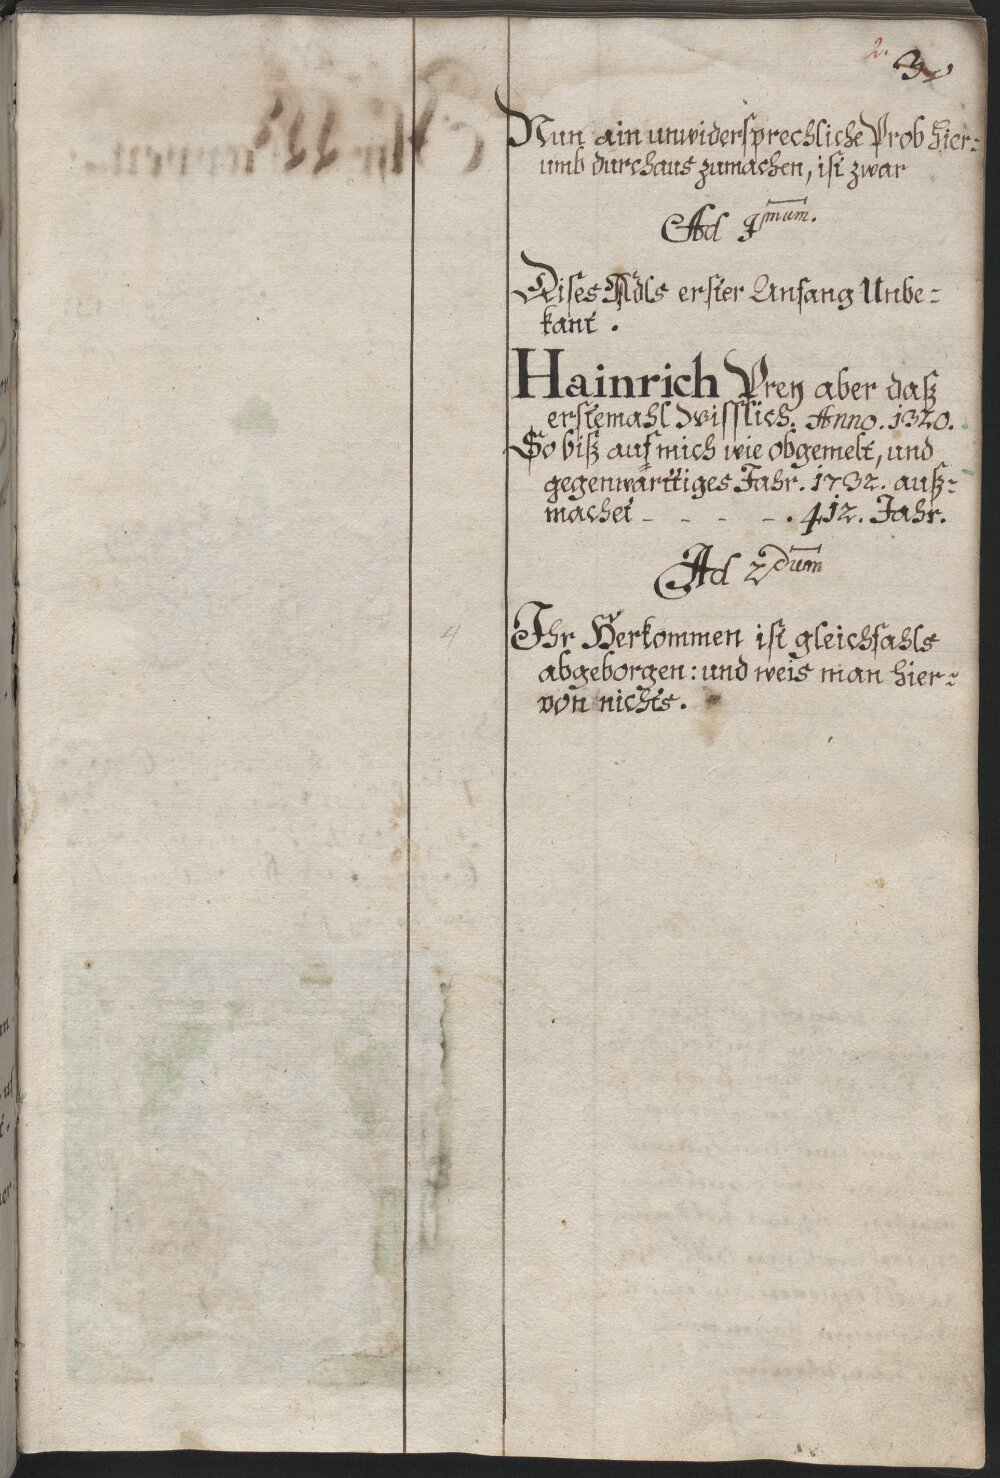 2. 3.
Nun ain unwidersprechliche Prob hier:
umb durchaus zumachen, ist zwar
Ad 1mum.
Dises Adls erster Anfang Unbe:
kant.
Hainrich Prey aber daß
erstemahl wisslich. Anno. 1320.
So biß auf mich wie obgemelt, und
gegenwärttiges Jahr. 1732. auß:
machet - - - - . 412. Jahr.
Ad 2dum
Ihr Herkommen ist gleichfahls
abgeborgen: und weis man hier:
von nichts.